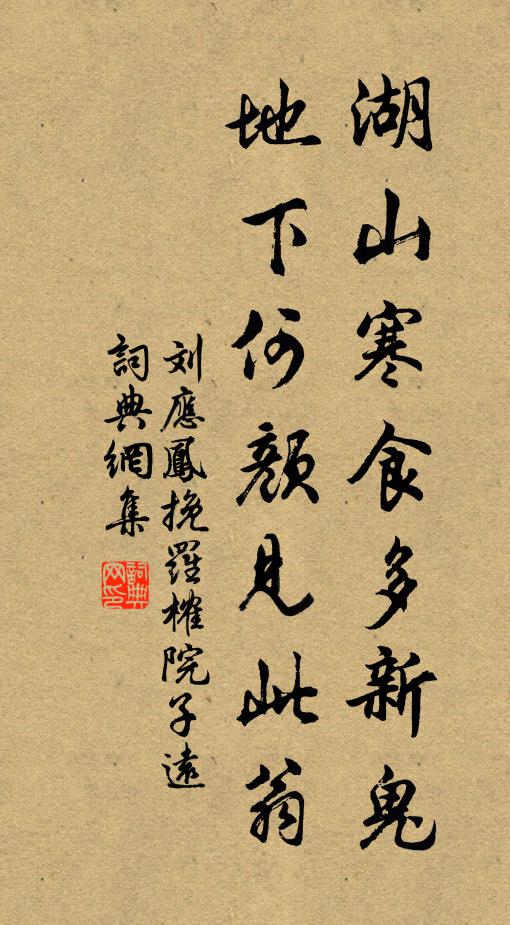 湖山寒食多新鬼
地下何顏見此翁
刘應鳳挽羅榷院子遠
詞典網集
詞典网印